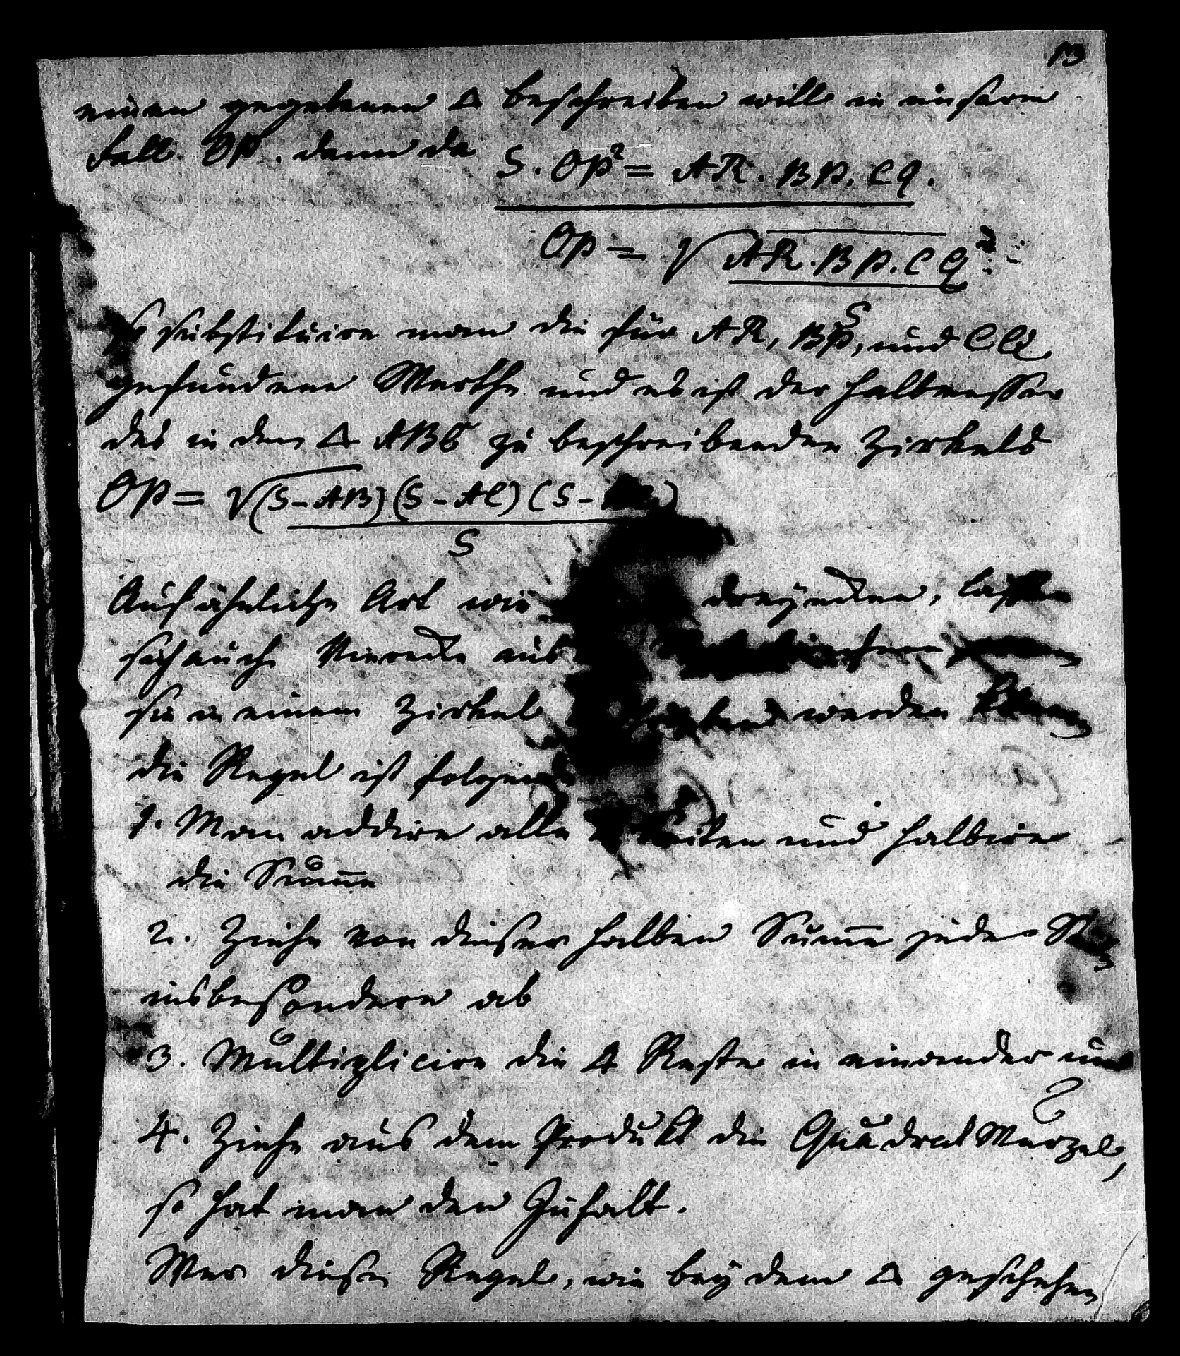 13
einen gegebenen △ beschreiben will in unserm
Fall. Op. denn da S. Op² = AR. BP. CQ.
Op = √AR. BP. CQ
S
so substituire man die für AR, BP, und CQ
gefundene Werthe und es ist der Halbmesser
des in dem △ ABC zu beschreibenden Zirkels
Op = √(S-AB)(S-AC)(S-
S
Auf ähnliche Art wie dreyecken, lassen
sich auch Vierecke aus
sie in einem Zirkel werden
die Regel ist folgende
1. Man addire alle 4 Seiten und halbire
die Summe
2. Ziehe von dieser halben Summe jede
insbesondere ab
3. Multiplicire die 4 Reste in einander und
4. Ziehe aus dem Produkt die Quadrat Wurzel,
so hat man den Inhalt.
Wer diese Regel, wie bey dem △ geschehen